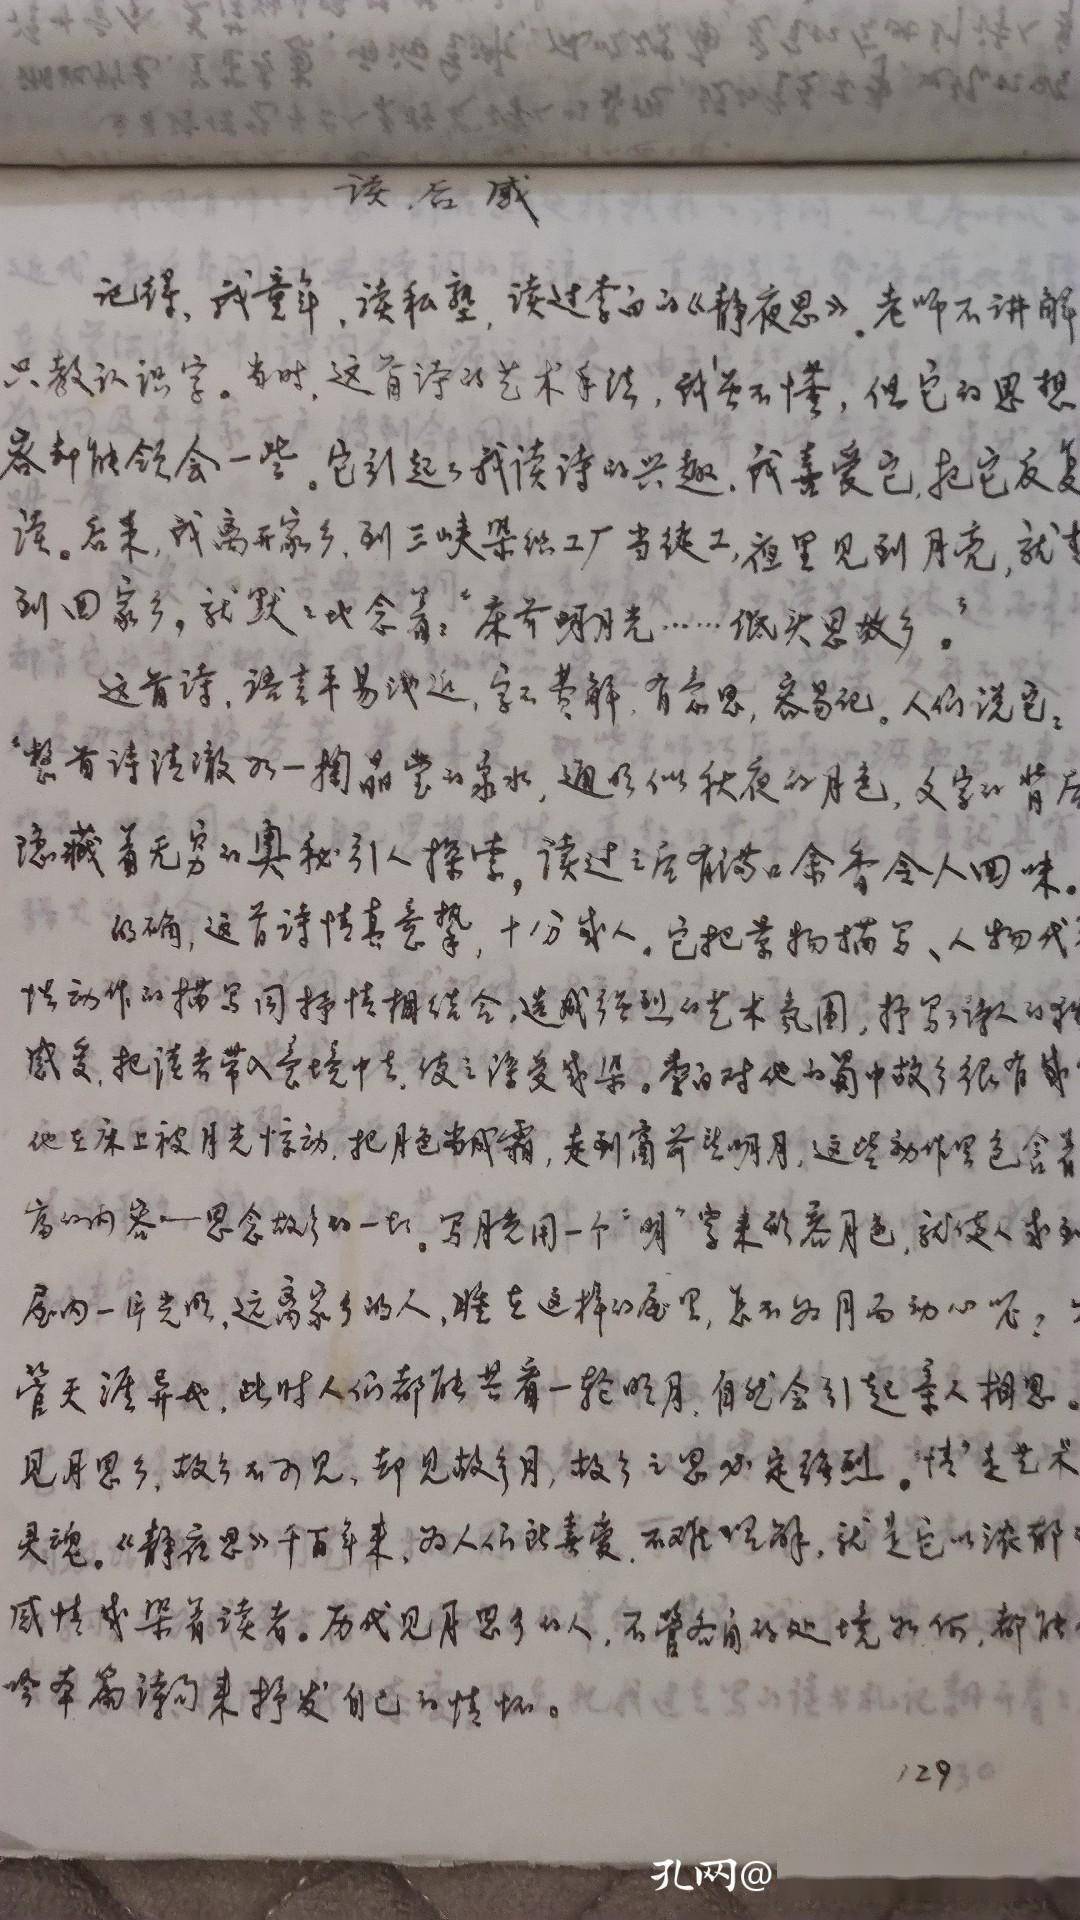 读后感
记得，我童年，读私塾，读过李白的《静夜思》。老师不讲解
只教认识字。当时，这首诗的艺术手法，我虽不懂，但它的思想
容却能领会一些。它引起了我读诗的兴趣，我喜爱它，把它反复
读。后来，我离开家乡，到三峡染织工厂当徒工，夜里见到月亮，就
到回家乡。就默默地念着：“床前明月光……低头思故乡。”
这首诗，语言平易浅近，字不费解，有意思，容易记。人们说它：
“整首诗清澈如一掬晶莹的泉水，通明似秋夜的月色，文字的背后
隐藏着无穷的奥秘引人探索，读过之后有满口余香令人回味。
的确，这首诗情真意挚，十分感人。它把景物描写、人物代
性动作的描写同抒情相结合，造成强烈的艺术氛围，抒写诗人的
感受，把读者带入意境中去，使之深受感染。李白对他的蜀中故乡很有感
他在床上被月光惊动，把月色当成霜，走到窗前望明月，这些动作里包含着
富的内容——思念故乡的一切。写月光用一个“明”字来形容月色，就使人感到
屋内一片光明，远离家乡的人，睡在这样的屋里，怎不为月而动心呢？
管天涯异地，此时人们都能共看一轮明月，自然会引起亲人相思。
见月思乡，故乡不可见，却见故乡月，故乡之思必定强烈。“情”是艺术
灵魂。《静夜思》千百年来，为人们所喜爱，不难理解，就是它以浓郁
感情感染着读者。历代见月思乡的人，不管各自的处境如何，都能
吟本篇诗句来抒发自己的情怀。
129
孔网@